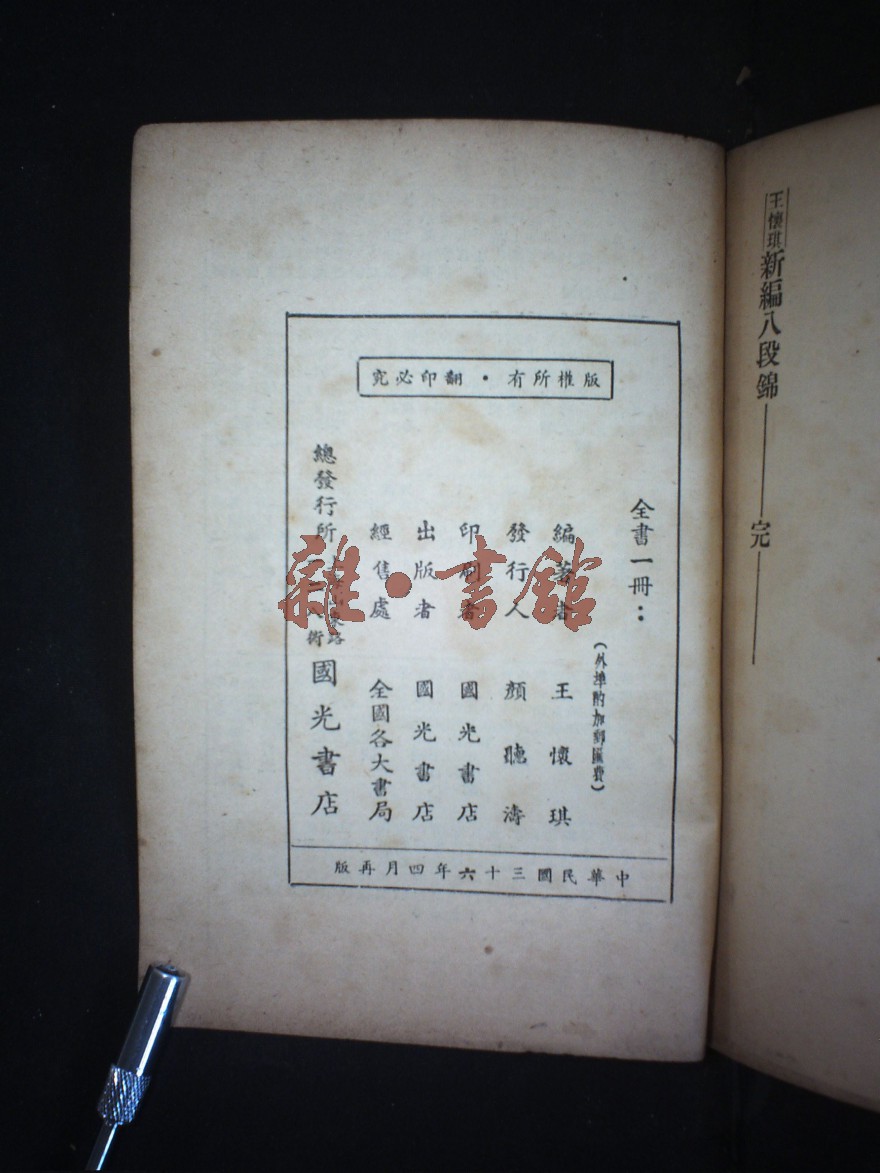 王懷琪新編八段錦——完——
版權所有・翻印必究
全書一冊：
(外埠酌加郵匯費)
編著者 王懷琪
發行人 顏聽濤
印刷者 國光書店
出版者 國光書店
經售處 全國各大書局
總發行所 國光書店
中華民國三十六年四月再版
雜・書館